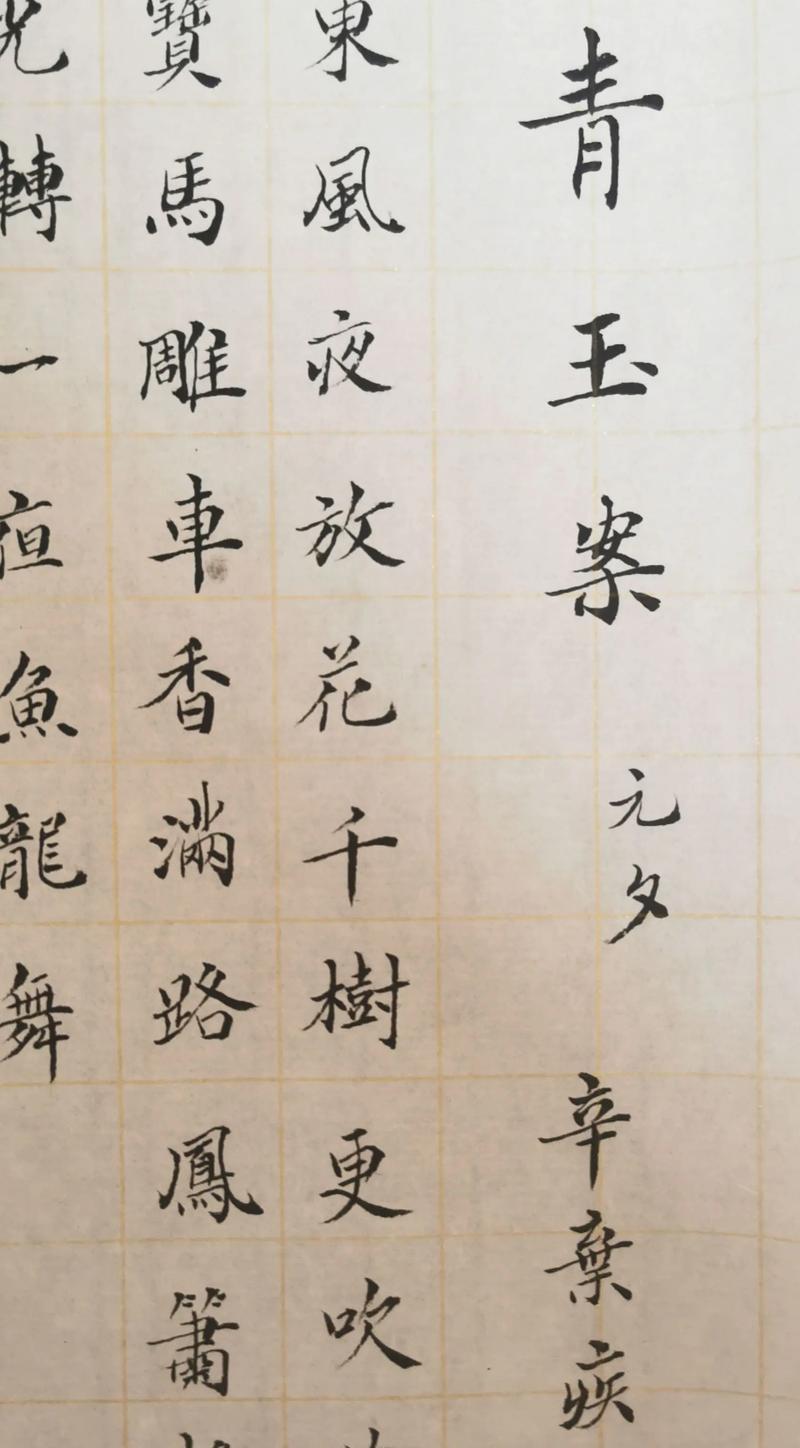 青玉案 元夕 辛棄疾
東風夜放花千樹更吹
寶馬雕車香滿路鳳簫
光轉一魚龍舞